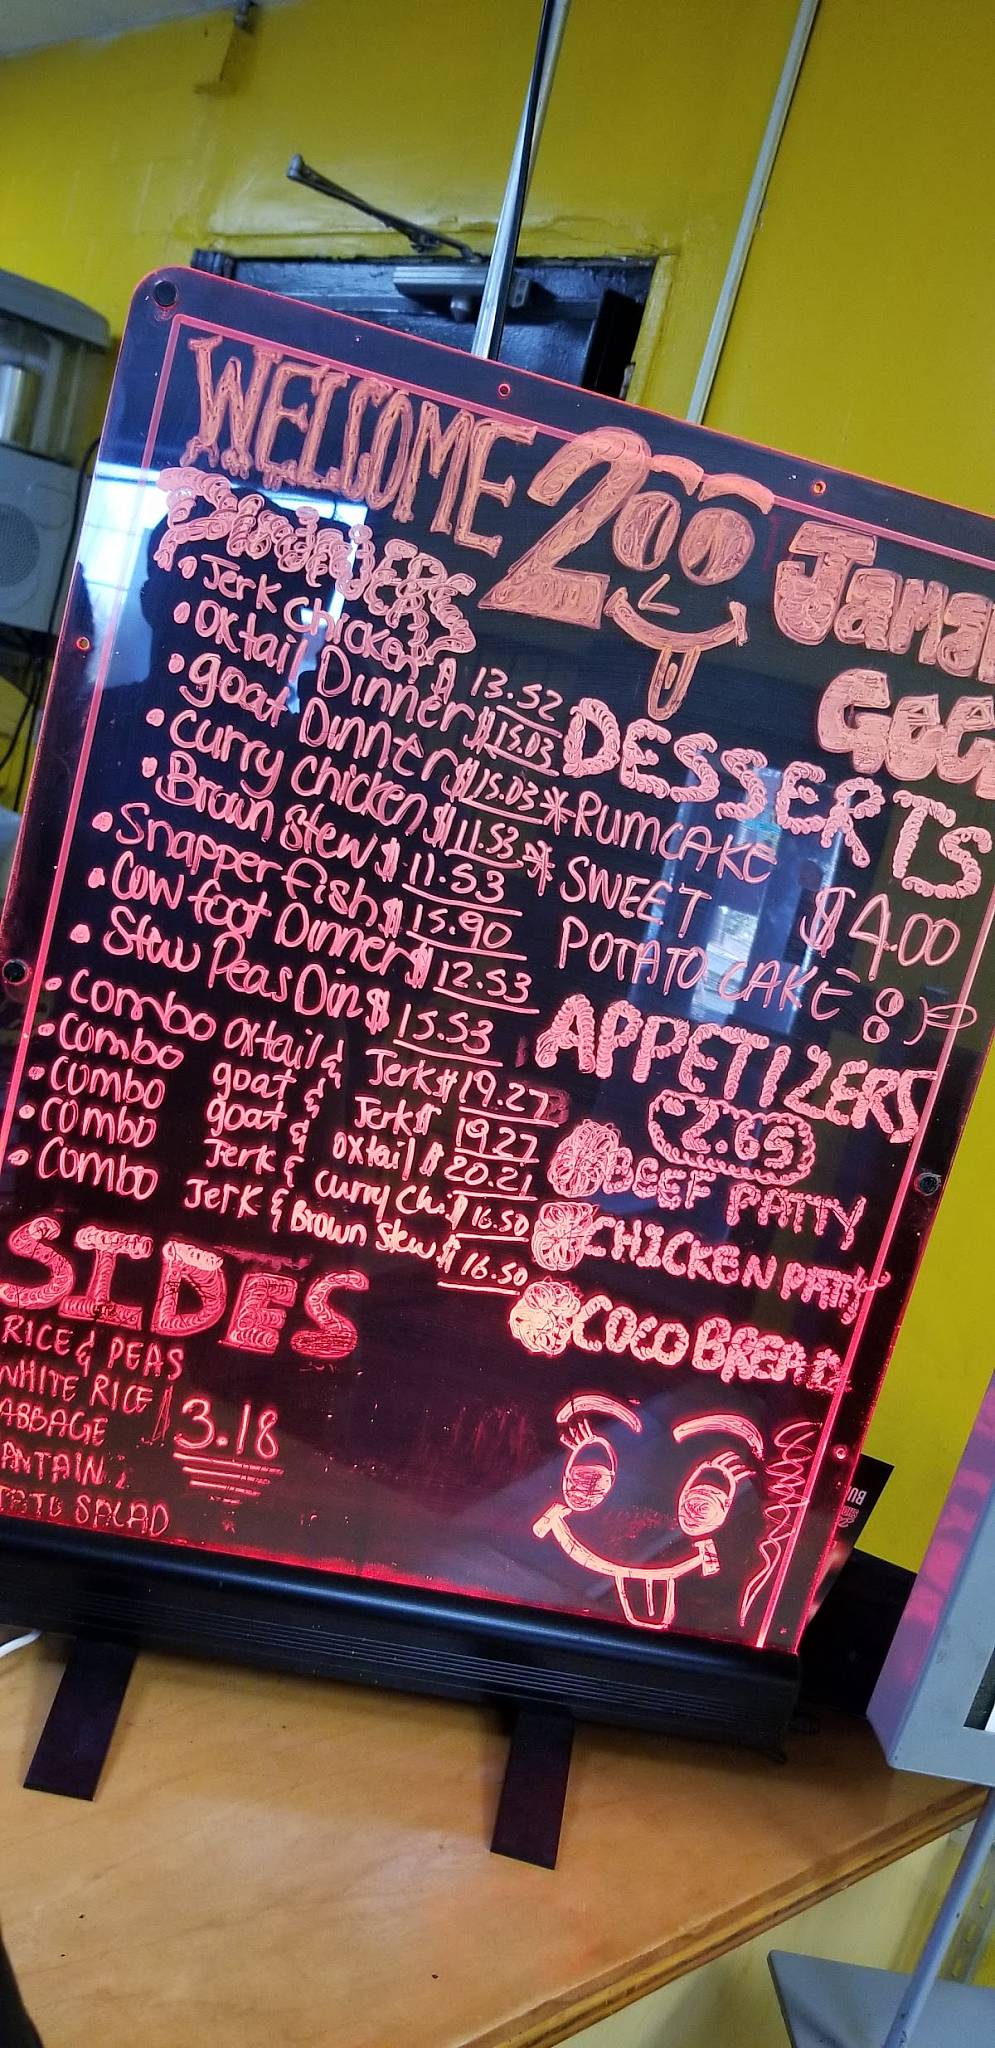 WELSOME 200 Jama
Gee
DinnERS
• Jerk chicken $ 13.52
• Oxtail Dinner $15.03
• goat Dinner $15.03
• Curry chicken $11.53
• Brown Stew $ 11.53
• Snapper fish $ 15.90
• Cow foot Dinner $ 12.53
• Stew Peas Din $ 15.53
• Combo oxtail & Jerk $19.27
• Combo goat & Jerk $ 19.27
• Combo goat & oxtail $ 20.21
• Combo Jerk & Curry Ch. $ 16.50
• Combo Jerk & Brown stew $ 16.50
DESSERTS
* RUMCAKE
* SWEET $4.00
POTATO CAKE
APPETIZERS
2.65
BEEF PATTY
CHICKEN PATTY
COCO BREAD
SIDES
RICE & PEAS
WHITE RICE
ABBAGE $3.18
ANTAIN
TATO SALAD